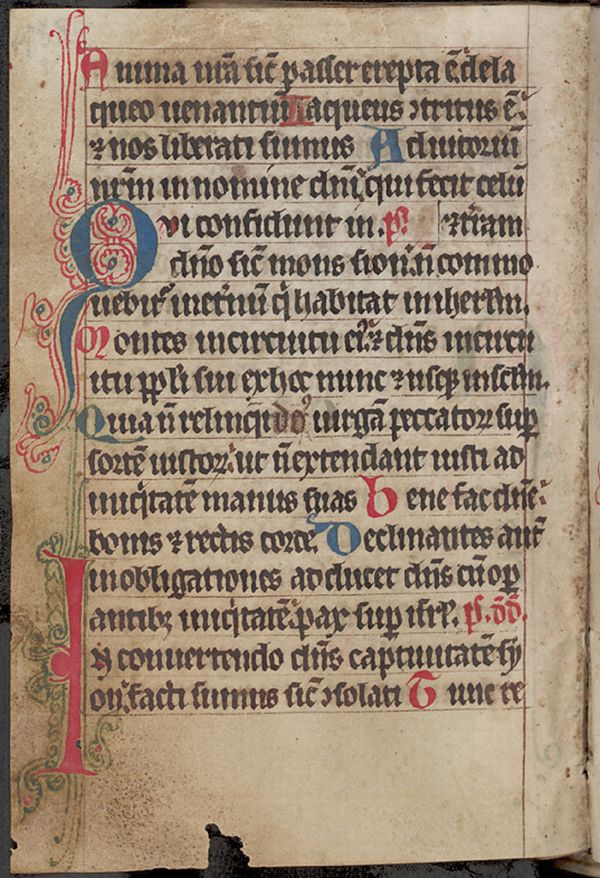 Anima nr̄a sic̄ passer erepta ē de la
queo uenantiū Laqueus ↄtritus ē.
⁊ nos liberati sumus Adiutoriū
nr̄m in nomine dn̄i qui fecit celū
Qvi confidunt in. p̄s ⁊ t̄ram
dn̄o sic̄ mons sion. n̄ commo
uebit᷑ inet̄nū q̇ habitat in iherl̄m.
Montes incircuitu ei᷒ ⁊ dn̄s incircu
itu ppl̄i sui ex hoc nunc ⁊ usqꝫ in sc̄lm.
Quia n̄ relinq̇t dn̄s uirgā peccatoꝝ sup̄
sortē iustoꝝ. ut n̄ extendant iusti ad
iniq̇tatē manus suas Bene fac dn̄e.
bonis ⁊ rectis corde. Declinantes aut̄
in obligationes adducet dn̄s cū op̄
antibꝫ iniq̇tatē. pax sup̄ isrl̄. p̄s. dd̄.
In conuertendo dn̄s captiuitatē sy
on. facti sumus sic̄ ↄsolati Tunc re